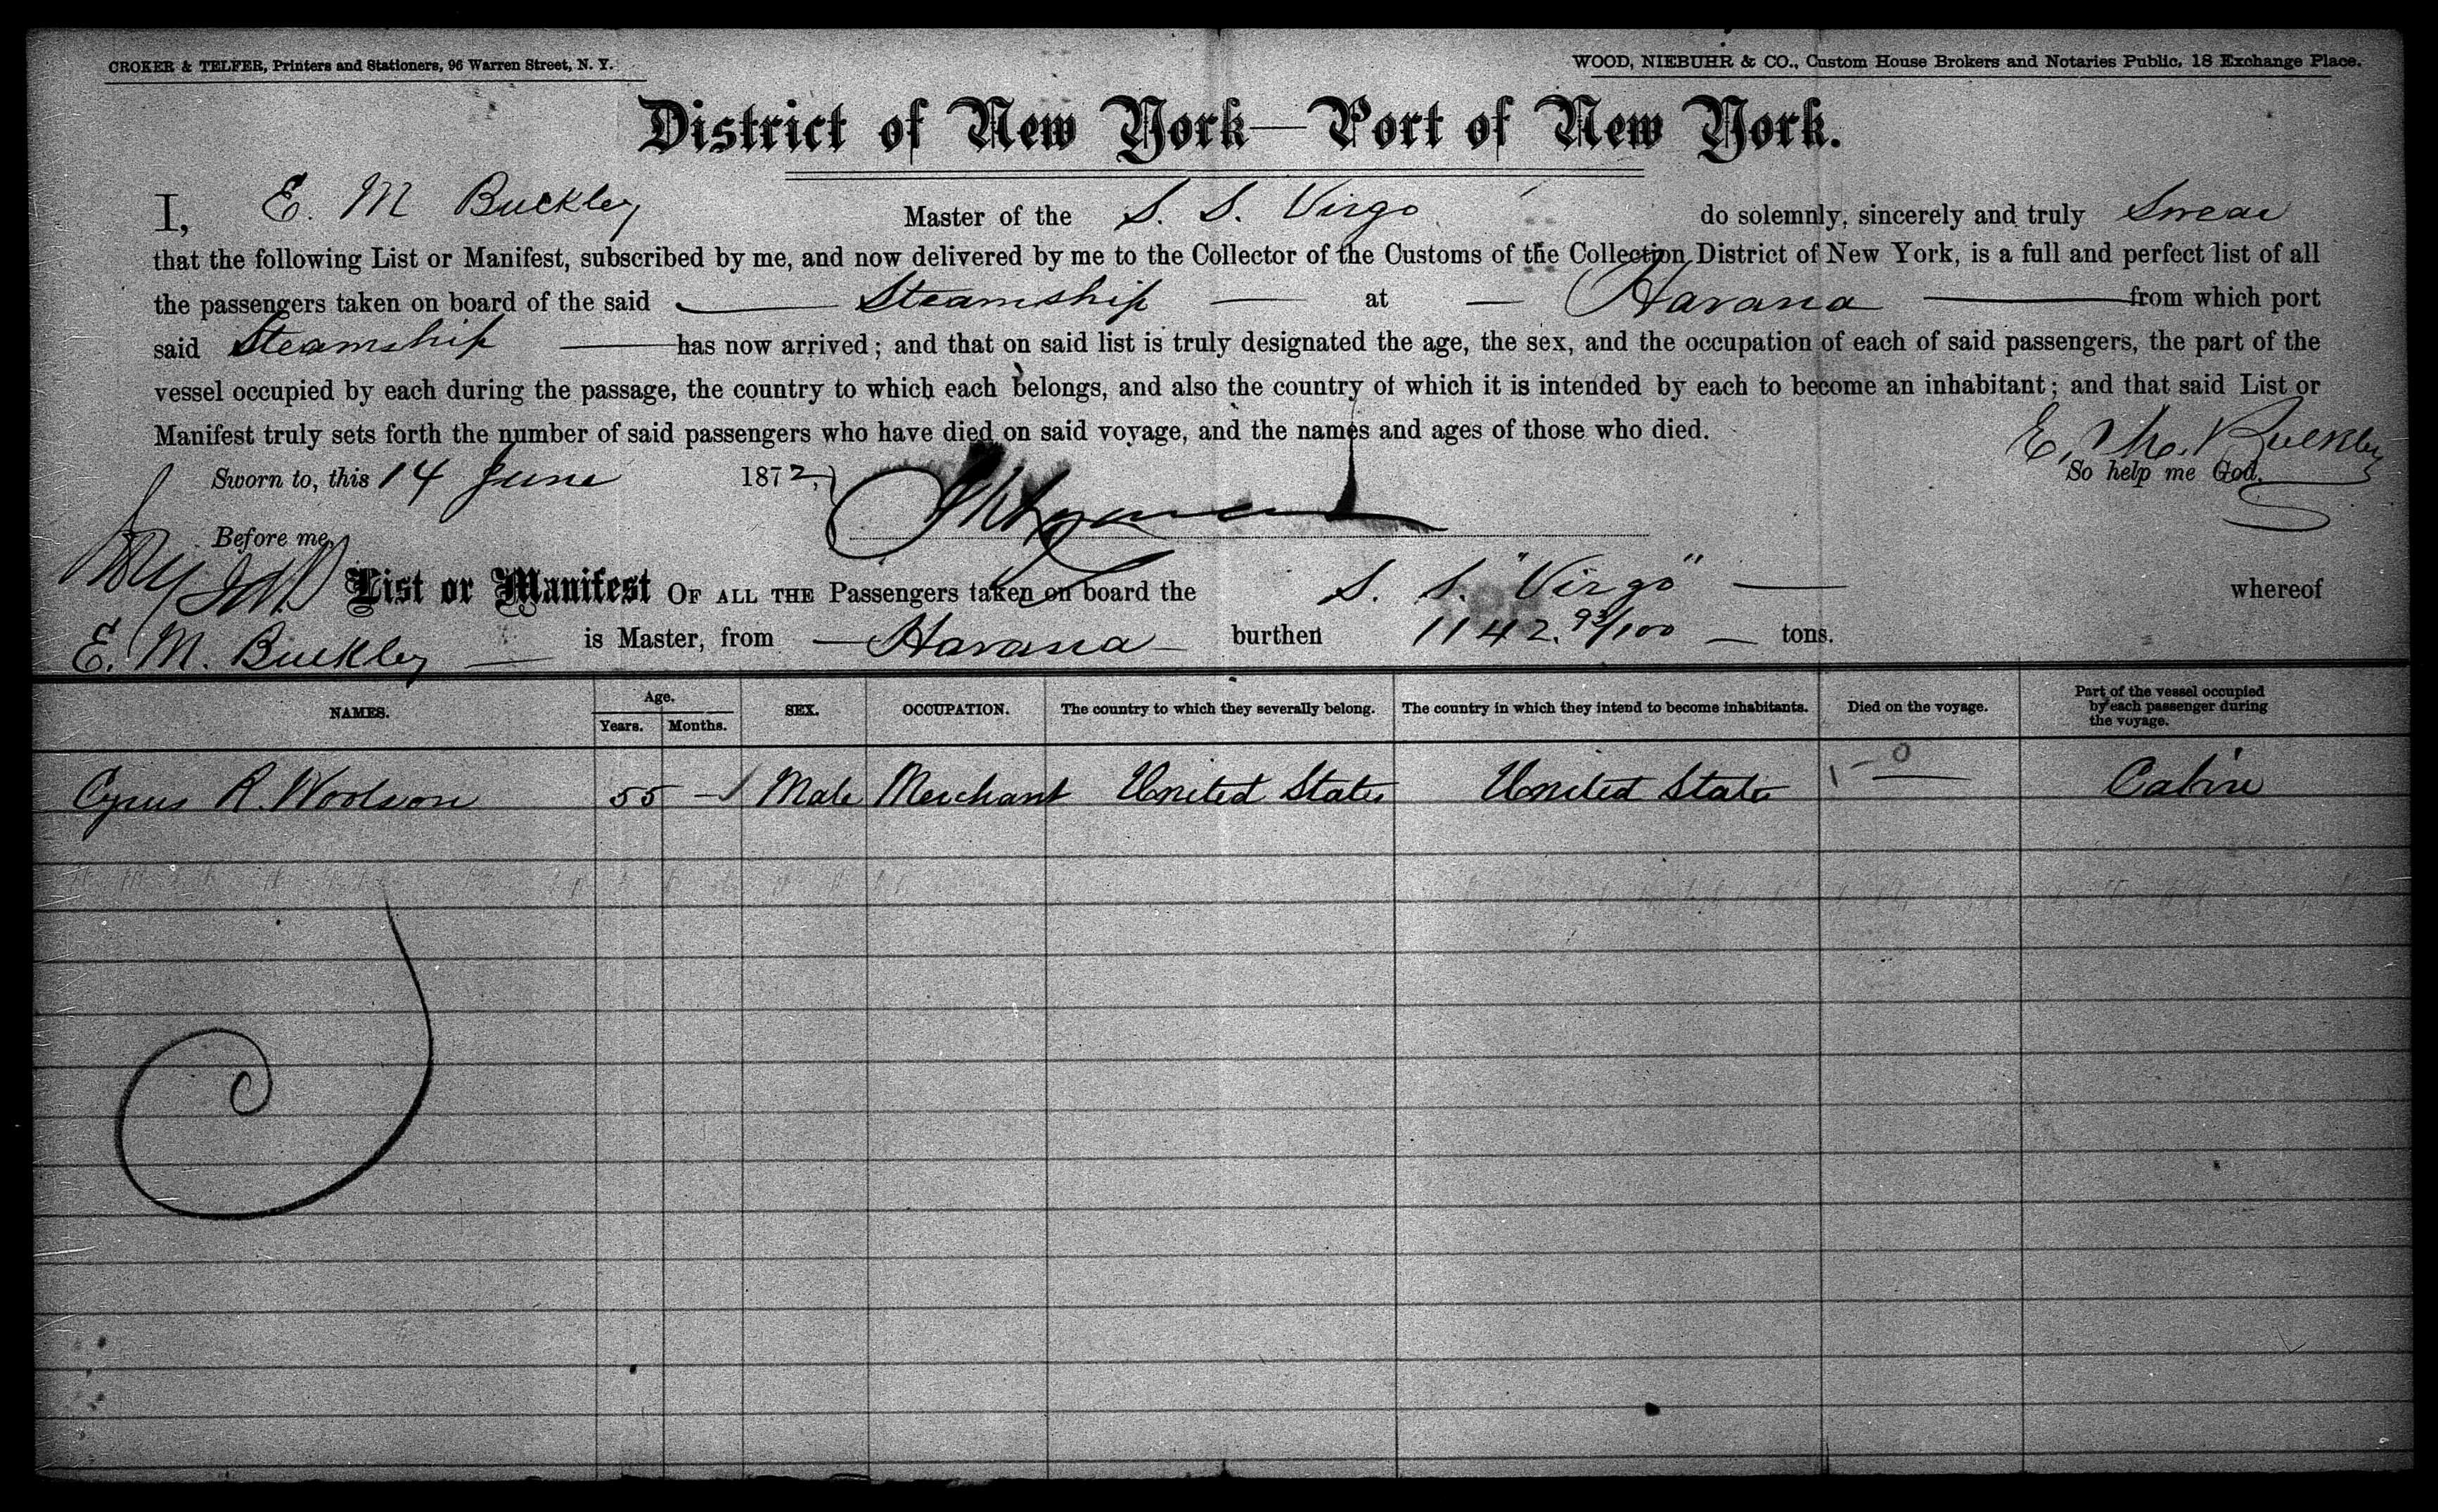 CROKER & TELFER, Printers and Stationers, 96 Warren Street, N. Y.
WOOD, NIEBUHR & CO., Custom House Brokers and Notaries Public, 18 Exchange Place.
District of New York—Port of New York.
I, E. M Buckley Master of the S. S. Virgo do solemnly, sincerely and truly Swear
that the following List or Manifest, subscribed by me, and now delivered by me to the Collector of the Customs of the Collection District of New York, is a full and perfect list of all
the passengers taken on board of the said — Steamship — at — Havana — from which port
said Steamship — has now arrived; and that on said list is truly designated the age, the sex, and the occupation of each of said passengers, the part of the
vessel occupied by each during the passage, the country to which each belongs, and also the country of which it is intended by each to become an inhabitant; and that said List or
Manifest truly sets forth the number of said passengers who have died on said voyage, and the names and ages of those who died.
E. Buckley
Sworn to, this 14 June 1872,
So help me God.
Before me,
List or Manifest OF ALL THE Passengers taken on board the S. S. "Virgo" — whereof
E. M. Buckley — is Master, from — Havana — burthen 1142.93/100 — tons.
NAMES. Age. Years. Months. SEX. OCCUPATION. The country to which they severally belong. The country in which they intend to become inhabitants. Died on the voyage. Part of the vessel occupied by each passenger during the voyage.
Cyrus R. Woolson 55 — Male Merchant United States United States 1 - 0 — Cabin